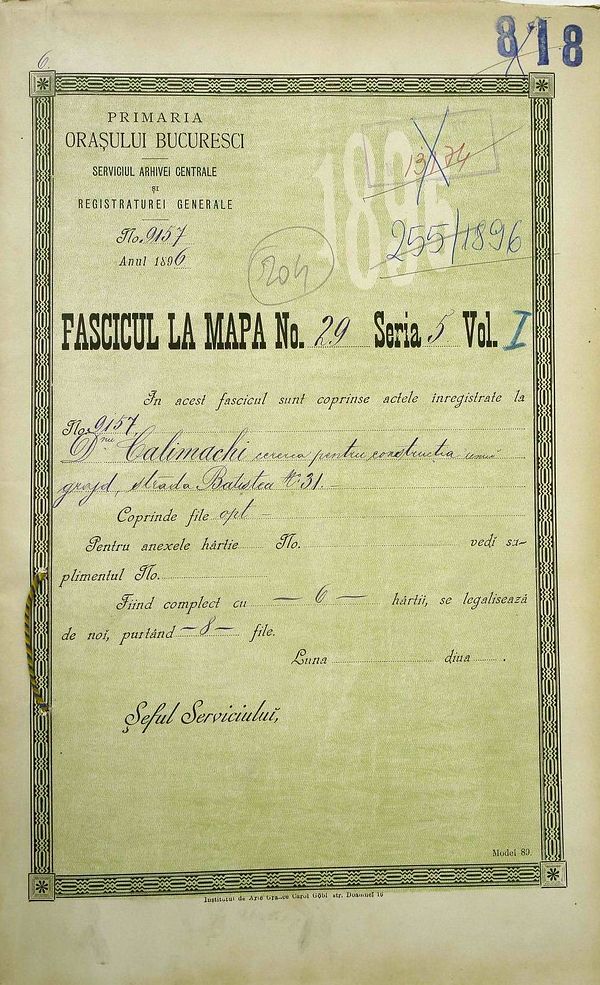 6.
8 18
PRIMARIA
ORAȘULUI BUCURESCI
SERVICIUL ARHIVEI CENTRALE
ȘI
REGISTRATUREI GENERALE
No. 9157
Anul 1896
1896
13/74
255/1896
204
FASCICUL LA MAPA No. 29 Seria 5 Vol. I
In acest fascicul sunt coprinse actele inregistrate la
No. 9157.
Dnu Calimachi cererea pentru constructia unui
grajd, strada Batistea No 31.
Coprinde file opt
Pentru anexele hârtie No. vedi su-
plimentul No.
Fiind complect cu — 6 — hârtii, se legalisează
de noi, purtând — 8 — file.
Luna diua .
Șeful Serviciuluĭ,
Model 89.
Institutul de Arte Grafice Carol Göbl str. Doamnei 16